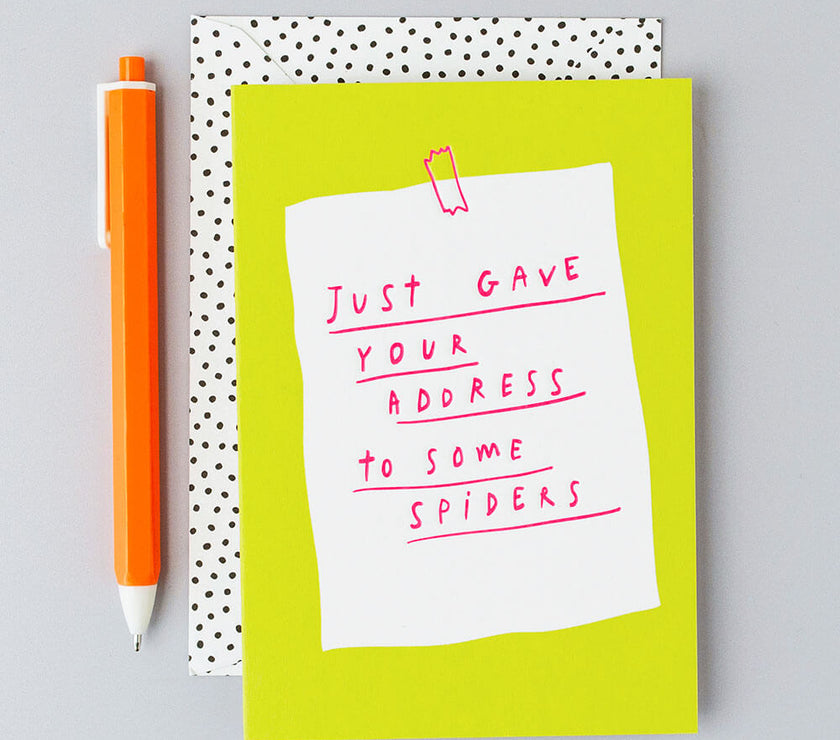 JUST GAVE
YOUR
ADDRESS
to SOME
SPiDERS